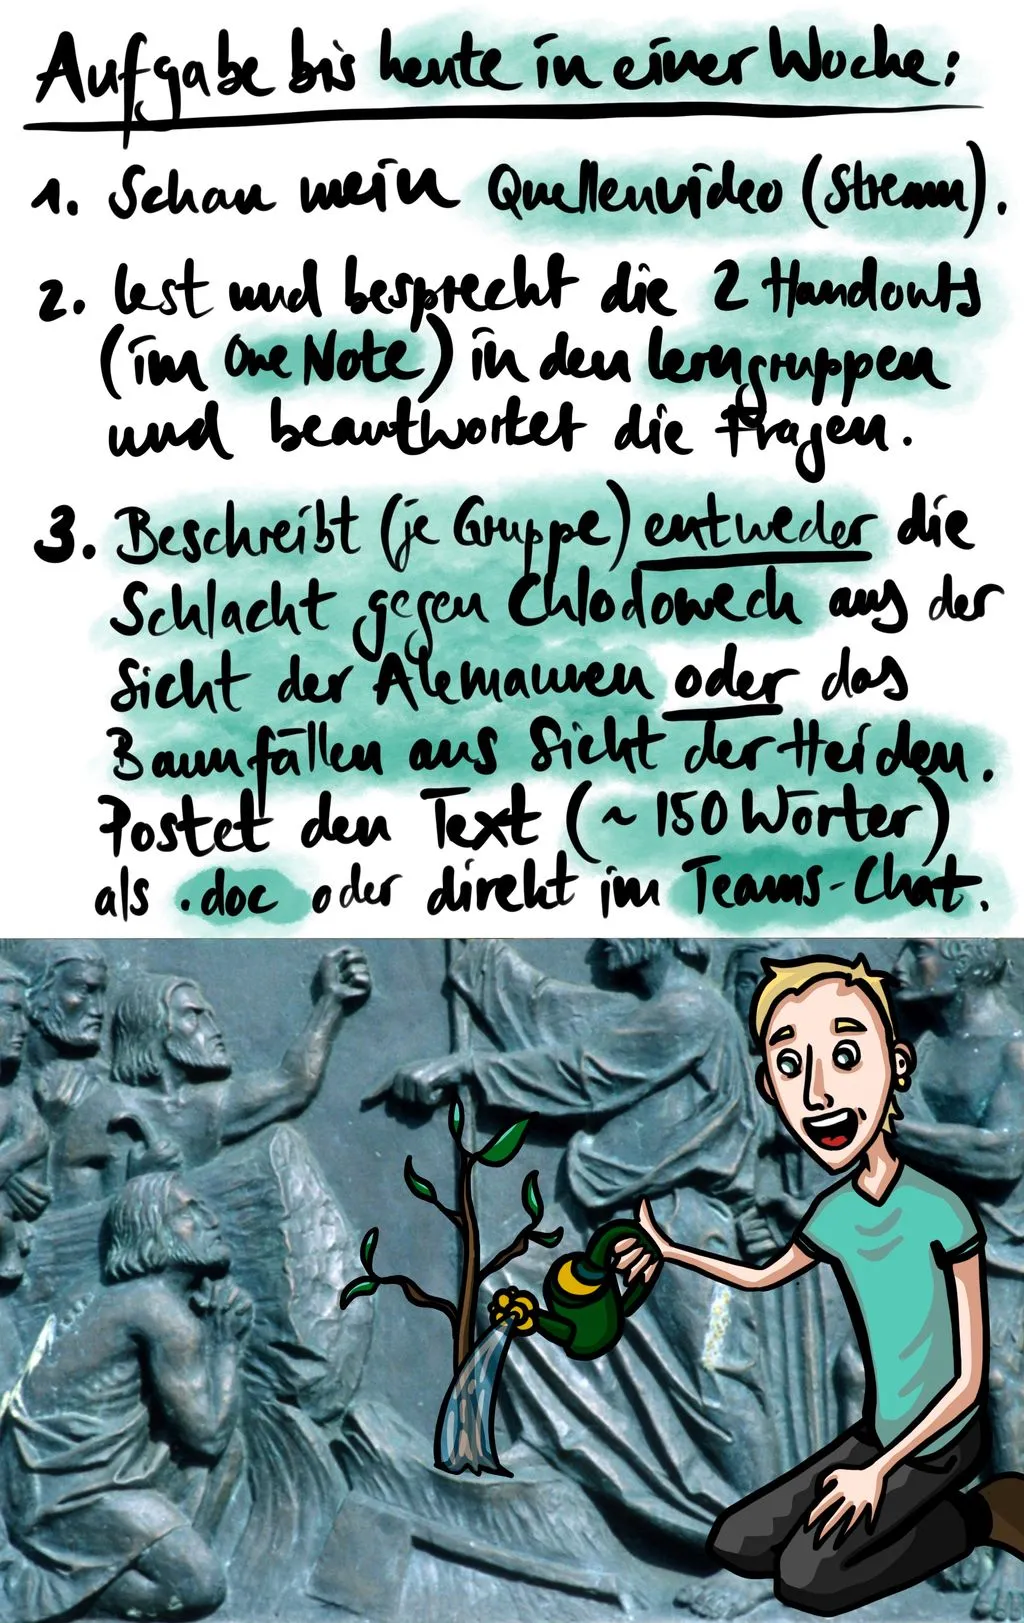 Aufgabe bis heute in einer Woche:
1. Schau mein Quellenvideo (Stream).
2. Lest und besprecht die 2 Handouts
(im OneNote) in den Lerngruppen
und beantwortet die Fragen.
3. Beschreibt (je Gruppe) entweder die
Schlacht gegen Chlodowech aus der
Sicht der Alemannen oder das
Baumfällen aus Sicht der Heiden.
Postet den Text (~150 Wörter)
als .doc oder direkt im Teams-Chat.